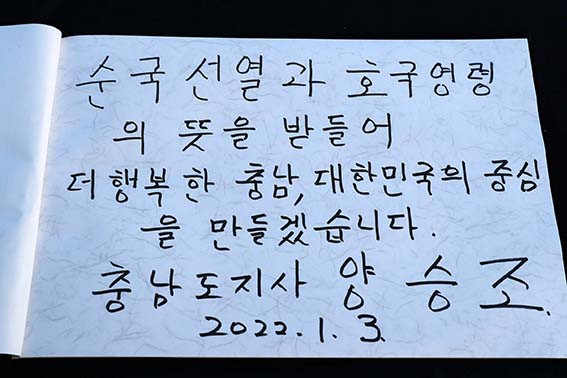 순국선열과 호국영령
의 뜻을 받들어
더 행복한 충남, 대한민국의 중심
을 만들겠습니다.
충남도지사 양승조.
2022. 1. 3.